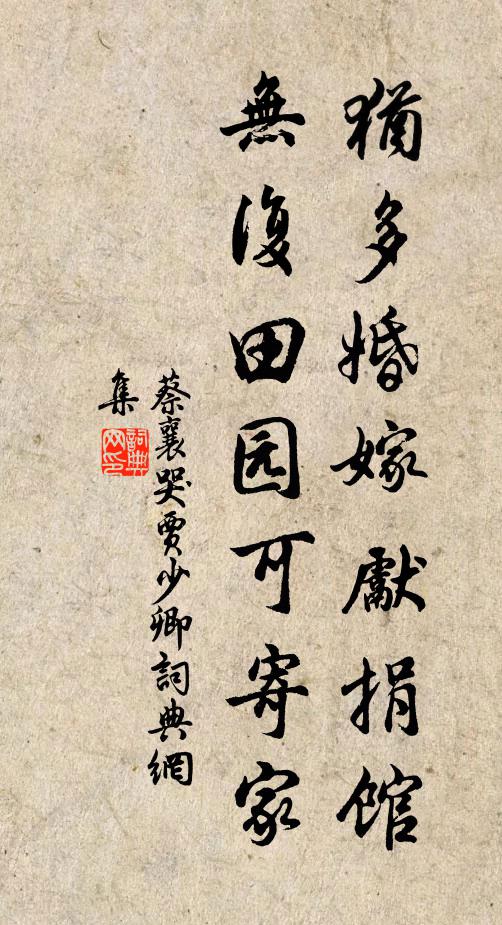 猶多婚嫁獻捐館
無復田园可寄家
蔡襄哭賈少卿詞典網
集
詞典
网印